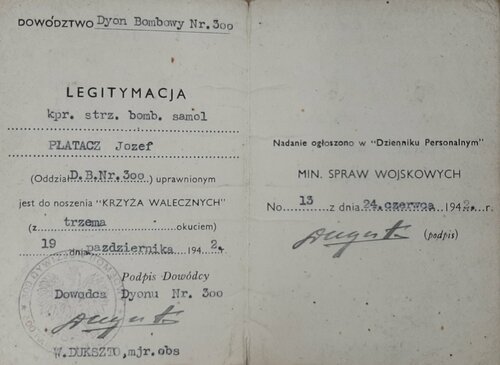 DOWÓDZTWO Dyon Bombowy Nr.300
LEGITYMACJA
kpr. strz. bomb. samol
PLATACZ Jozef
(Oddział D.B.Nr.300) uprawnionym
jest do noszenia "KRZYŻA WALECZNYCH"
(z trzema okuciem)
19 dnia października 1942.
Podpis Dowódcy
Dowodca Dyonu Nr. 300
W.DUKSZTO,mjr.obs
Nadanie ogłoszono w "Dzienniku Personalnym"
MIN. SPRAW WOJSKOWYCH
No 13 z dnia 24.czerwca 1942. r.
(podpis)